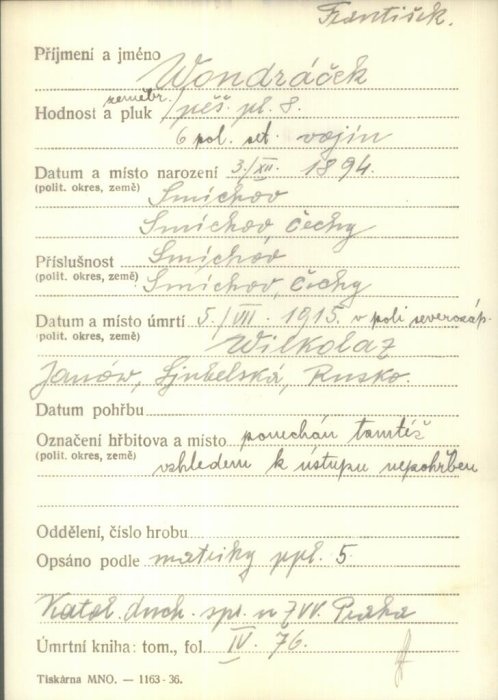 František.
Příjmení a jméno Wondráček
zeměbr.
Hodnost a pluk pěš. pl. 8.
6 pol. set. vojín
Datum a místo narození 3./XII. 1894.
(polit. okres, země) Smíchov
Smíchov, Čechy
Příslušnost Smíchov
(polit. okres, země) Smíchov, Čechy
Datum a místo úmrtí 5./VII. 1915. v poli severozáp.
(polit. okres, země) Wilkolaz
Janów, Ljubelská, Rusko.
Datum pohřbu
Označení hřbitova a místo ponechán tamtéž
(polit. okres, země) vzhledem k ústupu nepohřben
Oddělení, číslo hrobu
Opsáno podle matriky ppl. 5.
Katol. duch. spr. u ZVV. Praha
Úmrtní kniha: tom., fol. IV. 76.
Tiskárna MNO. — 1163-36.